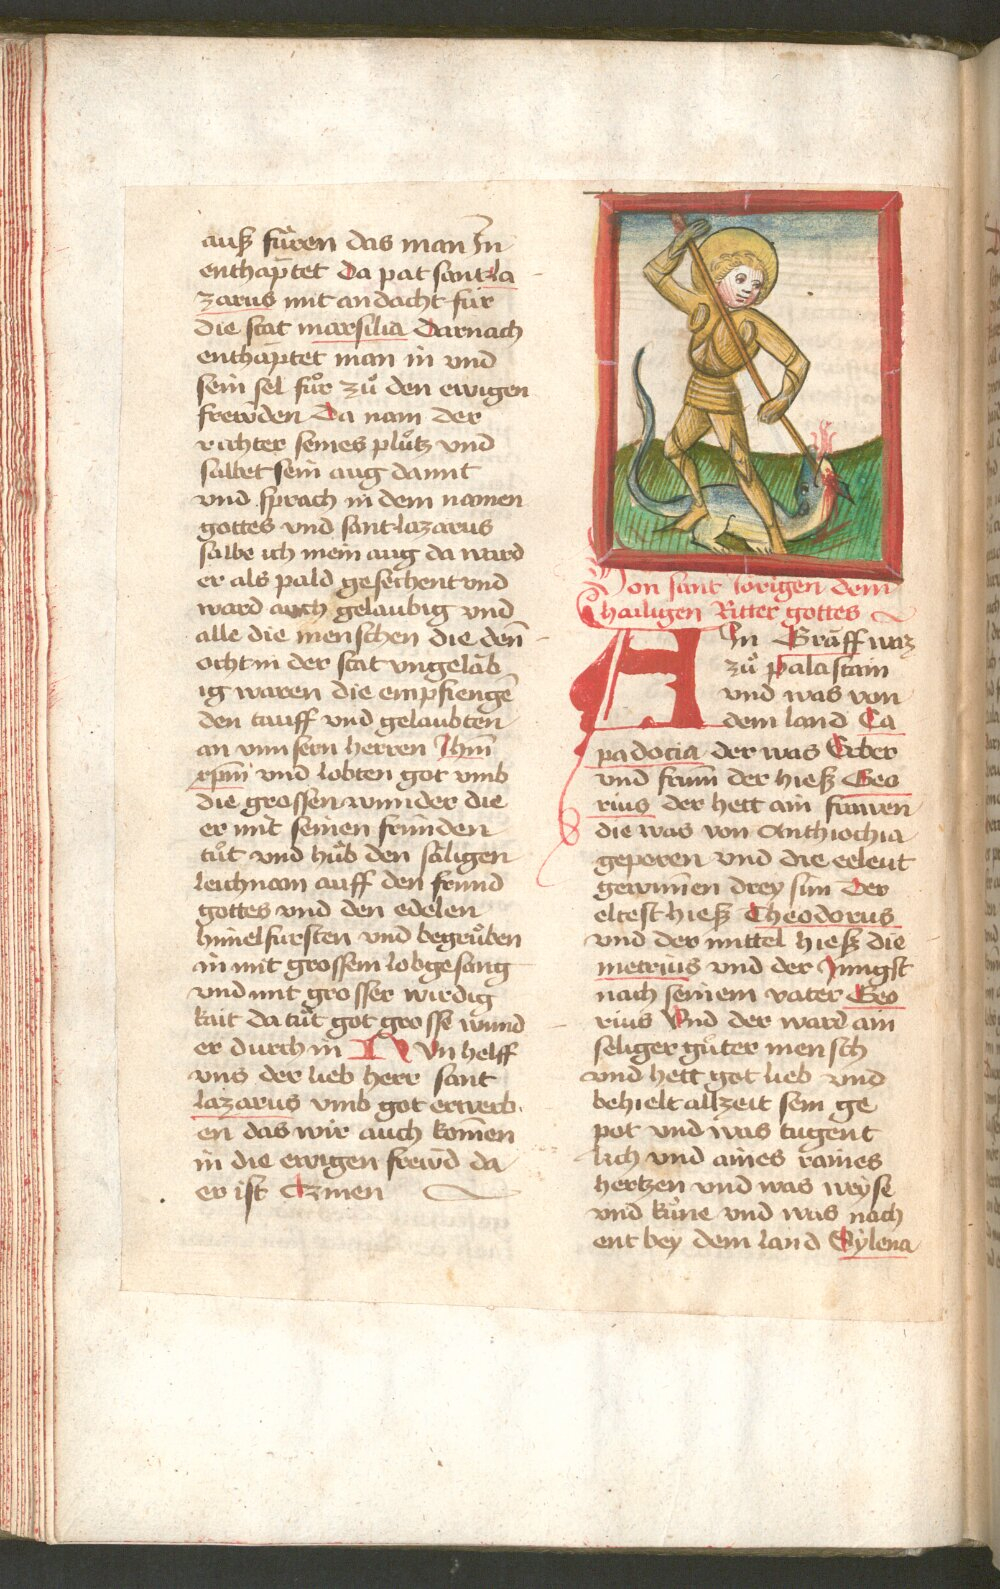 auß füren das man In
enthaptet Da pat sant la
zarus mit andacht für
die stat marsilia Darnach
enthaptet man in vnd
sein sel fuͦr zuͦ den ewigen
frewden Da nam der
richter seines pluͦtz vnd
salbet sein aug damit
vnd sprach in dem namen
gottes vnd sant lazarus
salbe ich mein aug da ward
er als pald gesechent vnd
ward auch gelaubig vnd
alle die menschen die den̄
ocht in der stat vngelab
ig waren die empfiengē
den tauff vnd gelaubten
an vnnsern herren Ihm̄
xpm̄ vnd lobten got vmb
die grossen wunder die
er mit seinen frunden
tuͦt vnd huͦb den säligen
leichnam auff den frund
gottes vnd den edelen
himelfursten vnd begruͦben
in mit grossem lobgesang
vnd mit grosser wirdig
kait da tuͦt got grosse wund
er durch in Nun helff
vns der lieb herr sant
lazarus vmb got erwerb
en das wir auch komen
in die ewigen frewd da
er ist Amen
Von sant Iörigen dem
hailigen Ritter gottes
Ain Gräff waz
zuͦ palastain
vnd was von
dem land Ca
padocia der was Erber
vnd frum der hieß Geo
rius der hett ain frawen
die was von Anthiochia
geporen vnd die eeleut
gewinnen drey sün Der
eltest hieß Theodorus
vnd der mittel hieß die
metrius vnd der Jungst
nach seinem vater Geo
rius Vnd der ward ain
seliger guͦter mensch
vnd hett got lieb vnd
behielt allzeit sein ge
pot vnd was tugent
lich vnd aines raines
hertzen vnd was weyse
vnd küne vnd was nach
ent bey dem land Sylena